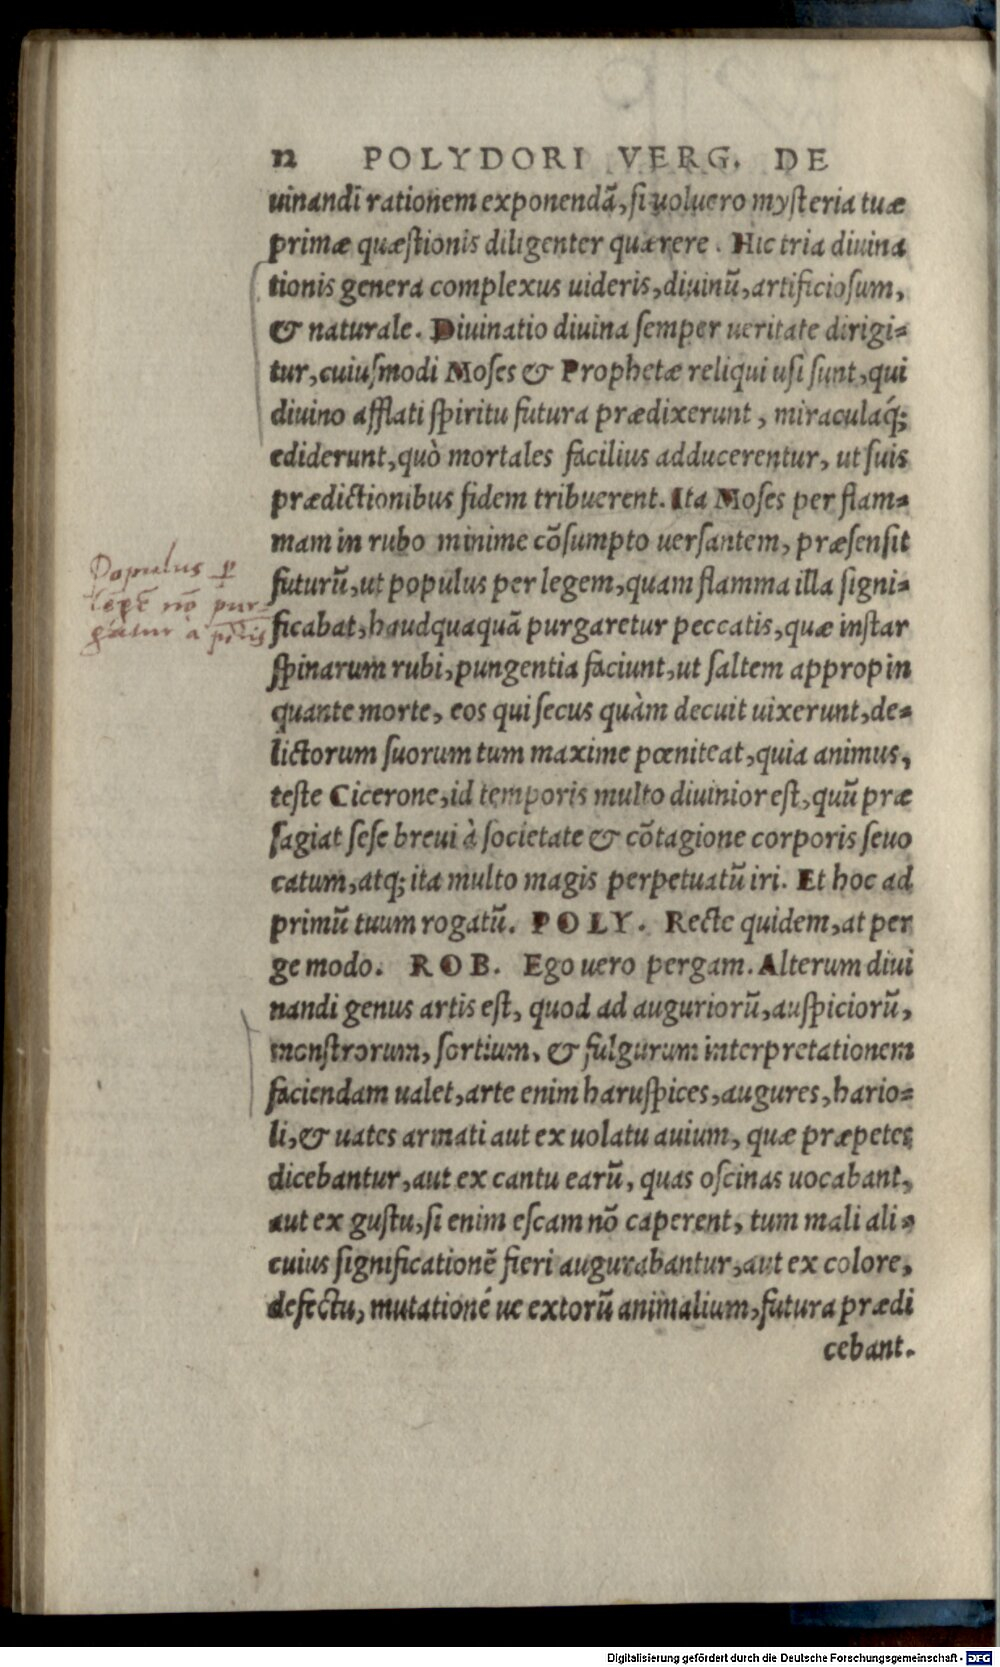 12 POLYDORI VERG. DE
uinandi rationem exponendã, si uoluero mysteria tuæ
primæ quæstionis diligenter quærere. Hic tria diuina
tionis genera complexus uideris, diuinũ, artificiosum,
& naturale. Diuinatio diuina semper ueritate dirigi-
tur, cuiusmodi Moses & Prophetæ reliqui usi sunt, qui
diuino afflati spiritu futura prædixerunt, miraculaq́;
ediderunt, quò mortales facilius adducerentur, ut suis
prædictionibus fidem tribuerent. Ita Moses per flam-
mam in rubo minime cõsumpto uersantem, præsensit
futurũ, ut populus per legem, quam flamma illa signi-
ficabat, haudquaquã purgaretur peccatis, quæ instar
spinarum rubi, pungentia faciunt, ut saltem appropin
quante morte, eos qui secus quàm decuit uixerunt, de-
lictorum suorum tum maxime pœniteat, quia animus,
teste Cicerone, id temporis multo diuinior est, quũ præ
sagiat sese breui à societate & cõtagione corporis seuo
catum, atq; ita multo magis perpetuatũ iri. Et hoc ad
primũ tuum rogatũ. POLY. Recte quidem, at per
ge modo. ROB. Ego uero pergam. Alterum diui
nandi genus artis est, quod ad auguriorũ, auspiciorũ,
monstrorum, sortium, & fulgurum interpretationem
faciendam ualet, arte enim haruspices, augures, hario-
li, & uates armati aut ex uolatu auium, quæ præpetes
dicebantur, aut ex cantu earũ, quas oscinas uocabant,
aut ex gustu, si enim escam nõ caperent, tum mali ali-
cuius significationẽ fieri augurabantur, aut ex colore,
defectu, mutationé ue extorũ animalium, futura prædi
cebant.
Populus p
legẽ nõ pur-
gatur à pctis
Digitalisierung gefördert durch die Deutsche Forschungsgemeinschaft - DFG